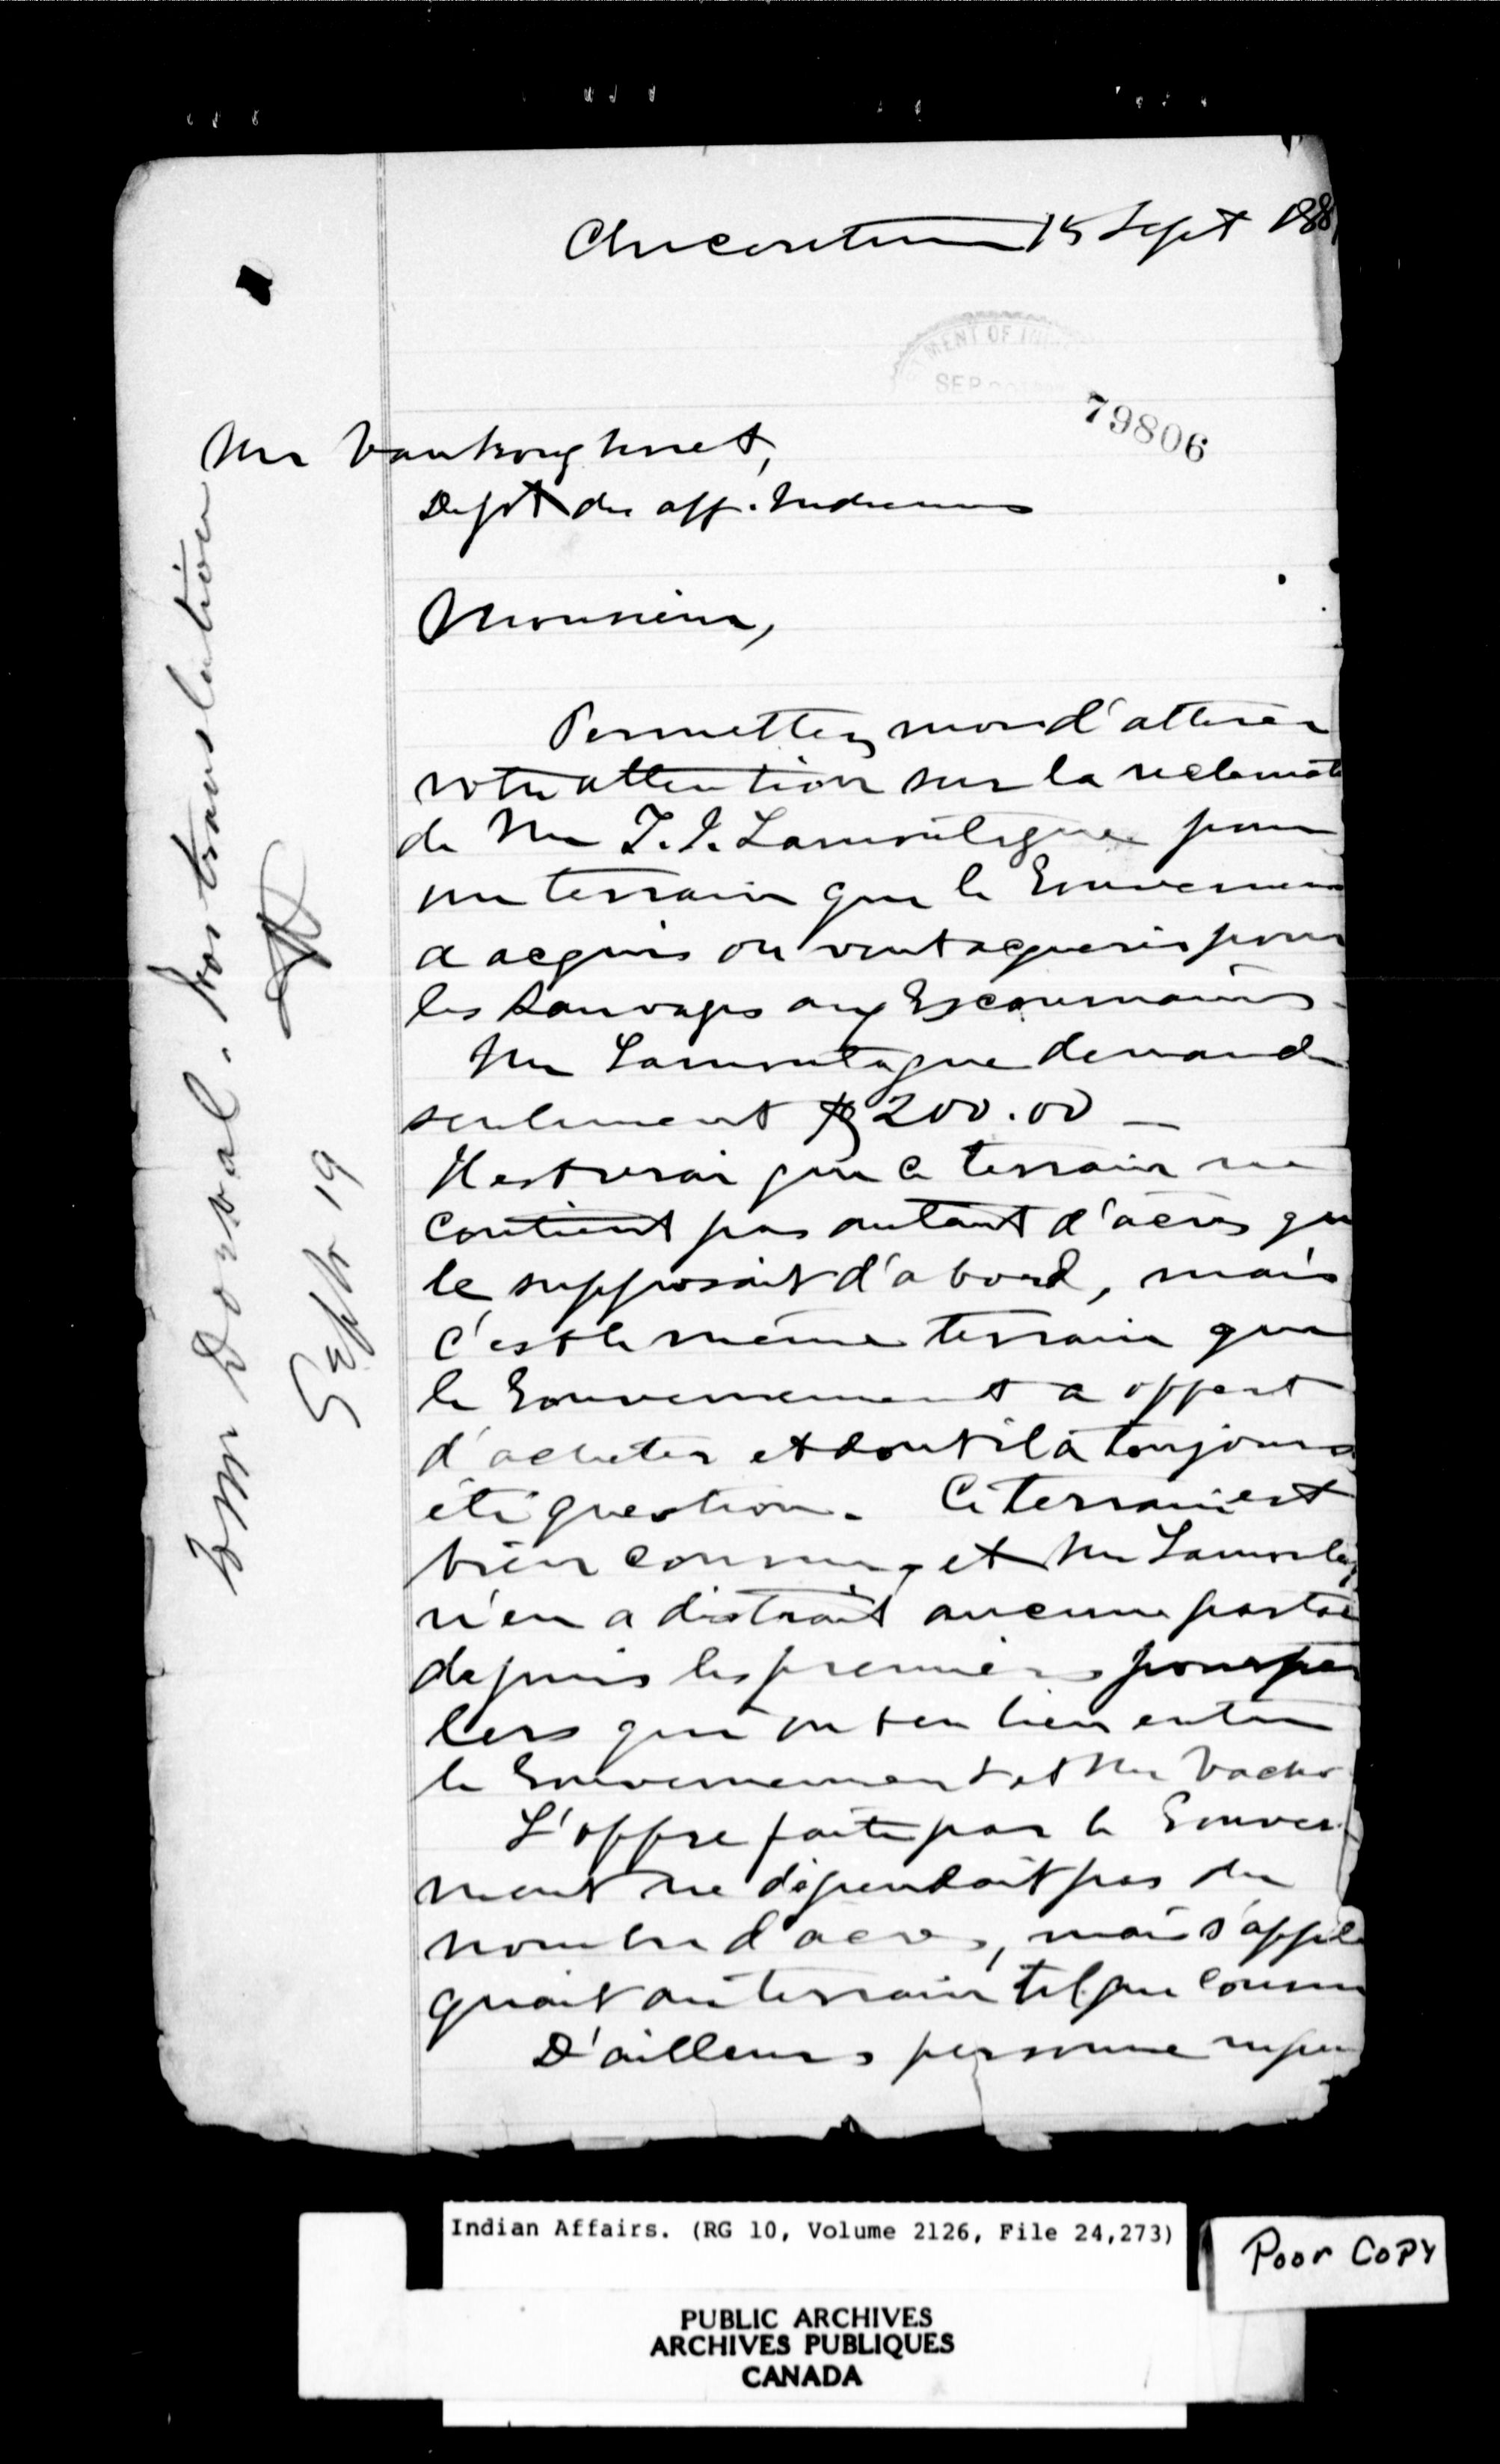 Chicoutimi 15 Sept 188
MENT OF IN
SEP
79806
Mr Vankoughnet,
Dept des aff. Indiennes
Monsieur,
Permettez moi d'attirer
votre attention sur la reclamat
de Mr T. J. Lamontagne pour
un terrain que le Gouvernem
a acquis ou veut acquerir pour
les Sauvages aux Escoumains.
Mr Lamontagne demande
seulement $200.00 —
Il est vrai que ce terrain ne
contient pas autant d'acres qu
le supposait d'abord, mais
c'est le même terrain que
le Gouvernement a offert
d'acheter et dont il a toujours
été question. Ce terrain est
bien connu, et Mr Lamontag
n'en a distrait aucune partie
depuis les premiers pourpar
lers qui ont eu lieu entre
le Gouvernement et Mr Vacho
L'offre faite par le Gouver
ment ne dépendait pas du
nombre d'acres, mais s'appli
quait au terrain tel que connu
D'ailleurs personne ne peu
Mr Dorval. for translation
Sept 19
Indian Affairs. (RG 10, Volume 2126, File 24,273)
Poor Copy
PUBLIC ARCHIVES
ARCHIVES PUBLIQUES
CANADA